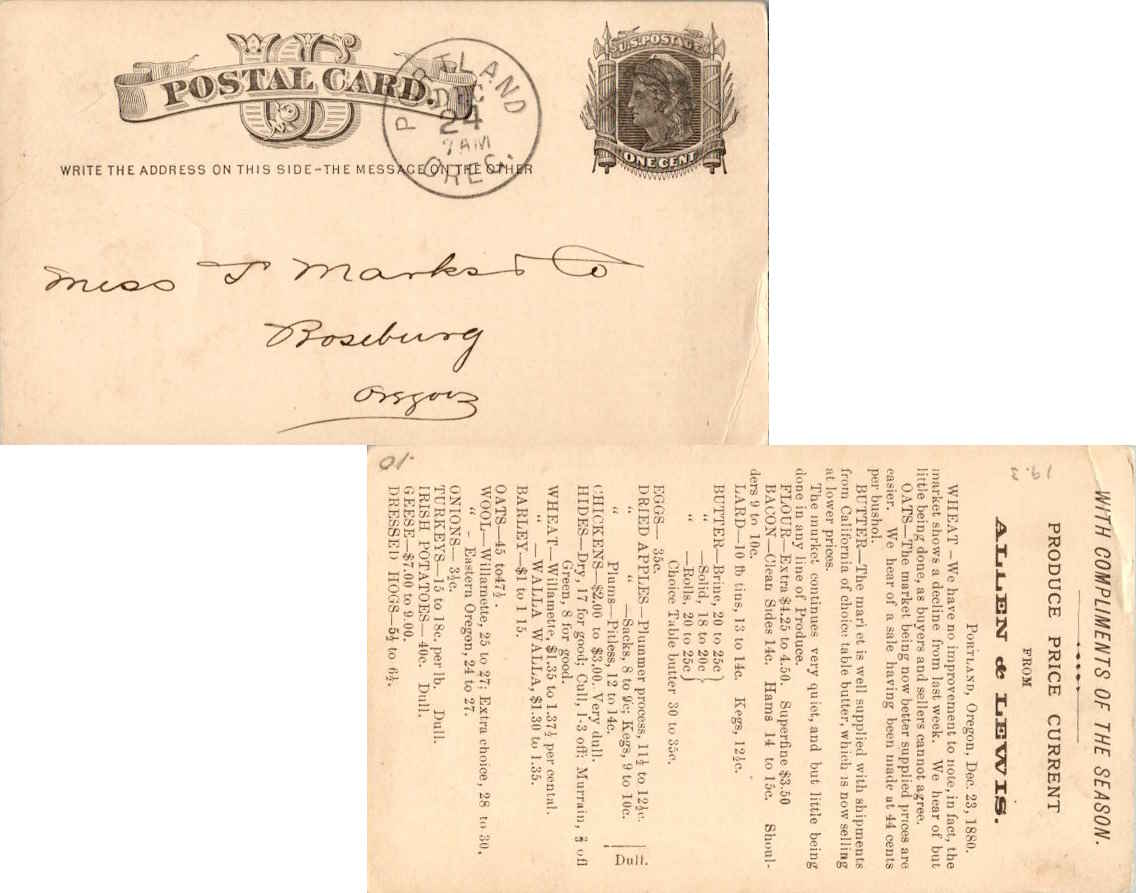 US
POSTAL CARD.
U.S. POSTAGE
ONE CENT
PORTLAND
DEC
24
7 AM
OREG.
WRITE THE ADDRESS ON THIS SIDE–THE MESSAGE ON THE OTHER
Miss J Marks & Co
Roseburg
Oregon
19.3
.10
WITH COMPLIMENTS OF THE SEASON.
PRODUCE PRICE CURRENT
FROM
ALLEN & LEWIS.
PORTLAND, Oregon, Dec. 23, 1880.
WHEAT–We have no improvement to note, in fact, the
market shows a decline from last week. We hear of but
little being done, as buyers and sellers cannot agree.
OATS–The market being now better supplied prices are
easier. We hear of a sale having been made at 44 cents
per bushol.
BUTTER–The mari et is well supplied with shipments
from California of choice table butter, which is now selling
at lower prices.
The market continues very quiet, and but little being
done in any line of Produce.
FLOUR–Extra $4.25 to 4.50. Superfine $3.50
BACON–Clean Sides 14c. Hams 14 to 15c. Shoul-
ders 9 to 10c.
LARD–10 lb tins, 13 to 14c. Kegs, 12½c.
BUTTER–Brine, 20 to 25c }
" –Solid, 18 to 20c }
" –Rolls, 20 to 25c }
Choice Table butter 30 to 35c.
EGGS– 35c.
DRIED APPLES–Plummer process, 11½ to 12½c.
" " –Sacks, 8 to 9c; Kegs, 9 to 10c.
" Plums–Pitless, 12 to 14c. | Dull.
CHICKENS–$2.00 to $3.00. Very dull.
HIDES–Dry, 17 for good; Cull, 1-3 off; Murrain, off
Green, 8 for good.
WHEAT–Willamette, $1.35 to 1.37½ per cental.
" –WALLA WALLA, $1.30 to 1.35.
BARLEY–$1 to 1 15.
OATS–45 to 47½.
WOOL–Willamette, 25 to 27; Extra choice, 28 to 30,
" - Eastern Oregon, 24 to 27.
ONIONS–3½c.
TURKEYS–15 to 18c. per lb. Dull.
IRISH POTATOES–40c. Dull.
GEESE–$7.00 to 9.00.
DRESSED HOGS–5½ to 6½.